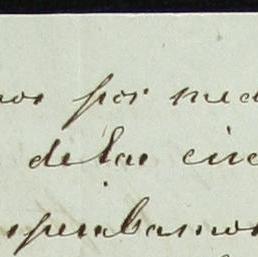 por med
de las circ
esperabamos